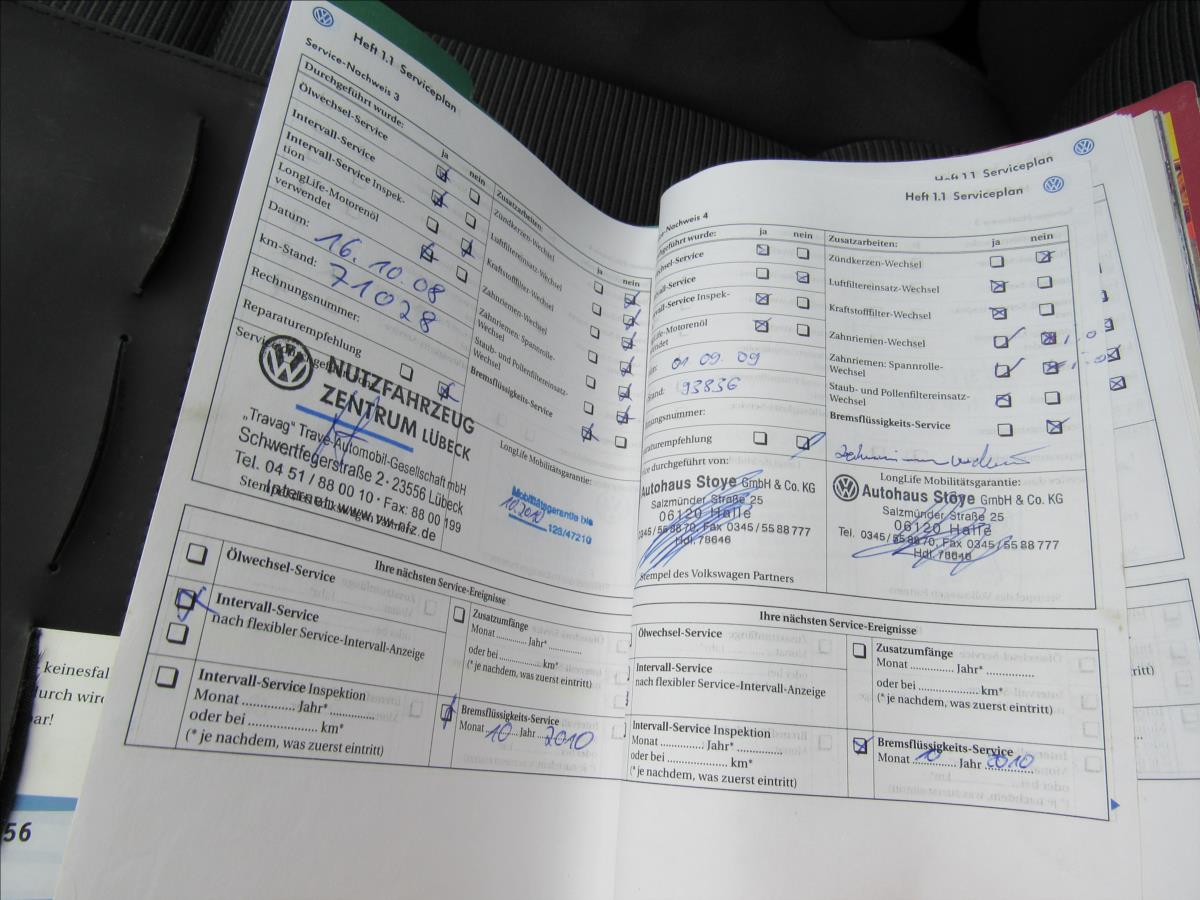 Heft 1.1 Serviceplan
Service-Nachweis 3
Durchgeführt wurde:
ja
nein
Ölwechsel-Service
Intervall-Service
Intervall-Service Inspek-
tion
LongLife-Motorenöl
verwendet
Datum: 16.10.08
km-Stand: 71028
Rechnungsnummer:
Reparaturempfehlung
Zusatzarbeiten:
ja
nein
Zündkerzen-Wechsel
Luftfiltereinsatz-Wechsel
Kraftstofffilter-Wechsel
Zahnriemen-Wechsel
Zahnriemen: Spannrolle-
Wechsel
Staub- und Pollenfiltereinsatz-
Wechsel
Bremsflüssigkeits-Service
NUTZFAHRZEUG
ZENTRUM LÜBECK
„Travag" Trave-Automobil-Gesellschaft mbH
Schwertfegerstraße 2 · 23556 Lübeck
Tel. 04 51 / 88 00 10 · Fax: 88 00 199
Internet: www.vw-nfz.de
LongLife Mobilitätsgarantie:
Mobilitätsgarantie bis
10.2010
128/47210
Ihre nächsten Service-Ereignisse
Ölwechsel-Service
Intervall-Service
nach flexibler Service-Intervall-Anzeige
Intervall-Service Inspektion
Monat Jahr*
oder bei km*
(* je nachdem, was zuerst eintritt)
Zusatzumfänge
Monat Jahr*
oder bei km*
(* je nachdem, was zuerst eintritt)
Bremsflüssigkeits-Service
Monat 10 Jahr 2010
Heft 1.1 Serviceplan
Heft 1.1 Serviceplan
Nachweis 4
geführt wurde:
ja
nein
chsel-Service
vall-Service
vall-Service Inspek-
ife-Motorenöl
endet
01 09.09
tand: 93836
nungsnummer:
araturempfehlung
ice durchgeführt von:
Zusatzarbeiten:
ja
nein
Zündkerzen-Wechsel
Luftfiltereinsatz-Wechsel
Kraftstofffilter-Wechsel
Zahnriemen-Wechsel
Zahnriemen: Spannrolle-
Wechsel
Staub- und Pollenfiltereinsatz-
Wechsel
Bremsflüssigkeits-Service
Autohaus Stoye GmbH & Co. KG
Salzmünder Straße 25
06120 Halle
0345/55 88 70, Fax 0345/55 88 777
Hdl. 78646
Stempel des Volkswagen Partners
LongLife Mobilitätsgarantie:
Autohaus Stoye GmbH & Co. KG
Salzmünder Straße 25
06120 Halle
Tel. 0345/55 88 70, Fax 0345/55 88 777
Hdl. 78646
Ihre nächsten Service-Ereignisse
Ölwechsel-Service
Intervall-Service
nach flexibler Service-Intervall-Anzeige
Intervall-Service Inspektion
Monat Jahr*
oder bei km*
(* je nachdem, was zuerst eintritt)
Zusatzumfänge
Monat Jahr*
oder bei km*
(* je nachdem, was zuerst eintritt)
Bremsflüssigkeits-Service
Monat 10 Jahr 2010
keinesfal
durch wird
bar!
56